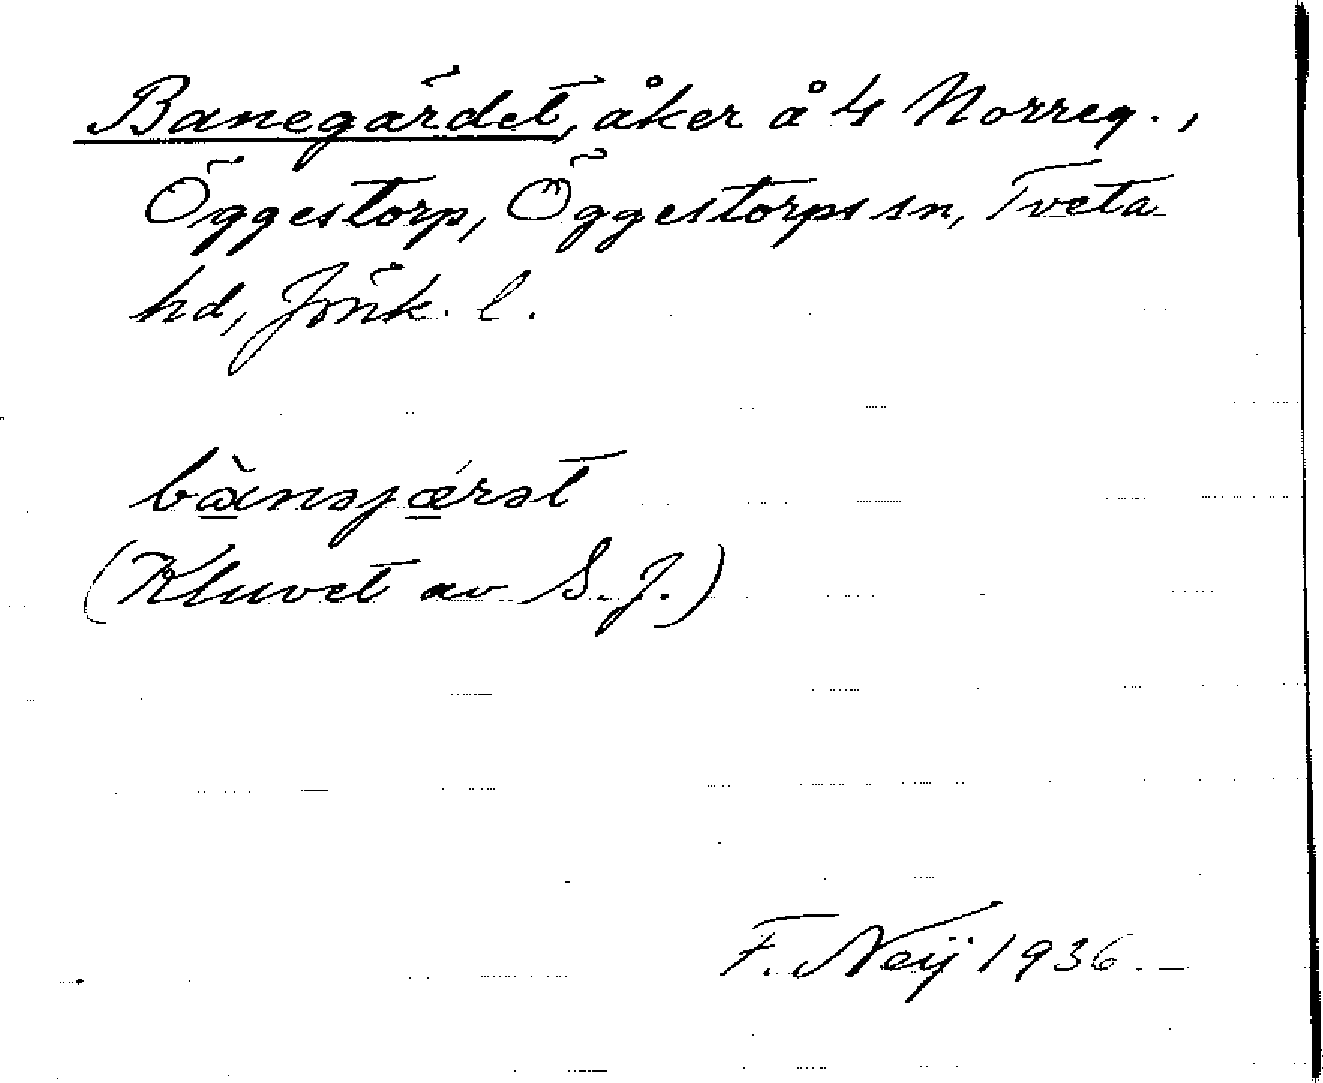 Banegärdet, åker å 4 Norreg.,
Öggestorp, Öggestorps sn, Tveta
hd, Jönk. l.
bànəjǽrət
(Kluvet av S.J.)
F. Neij 1936.